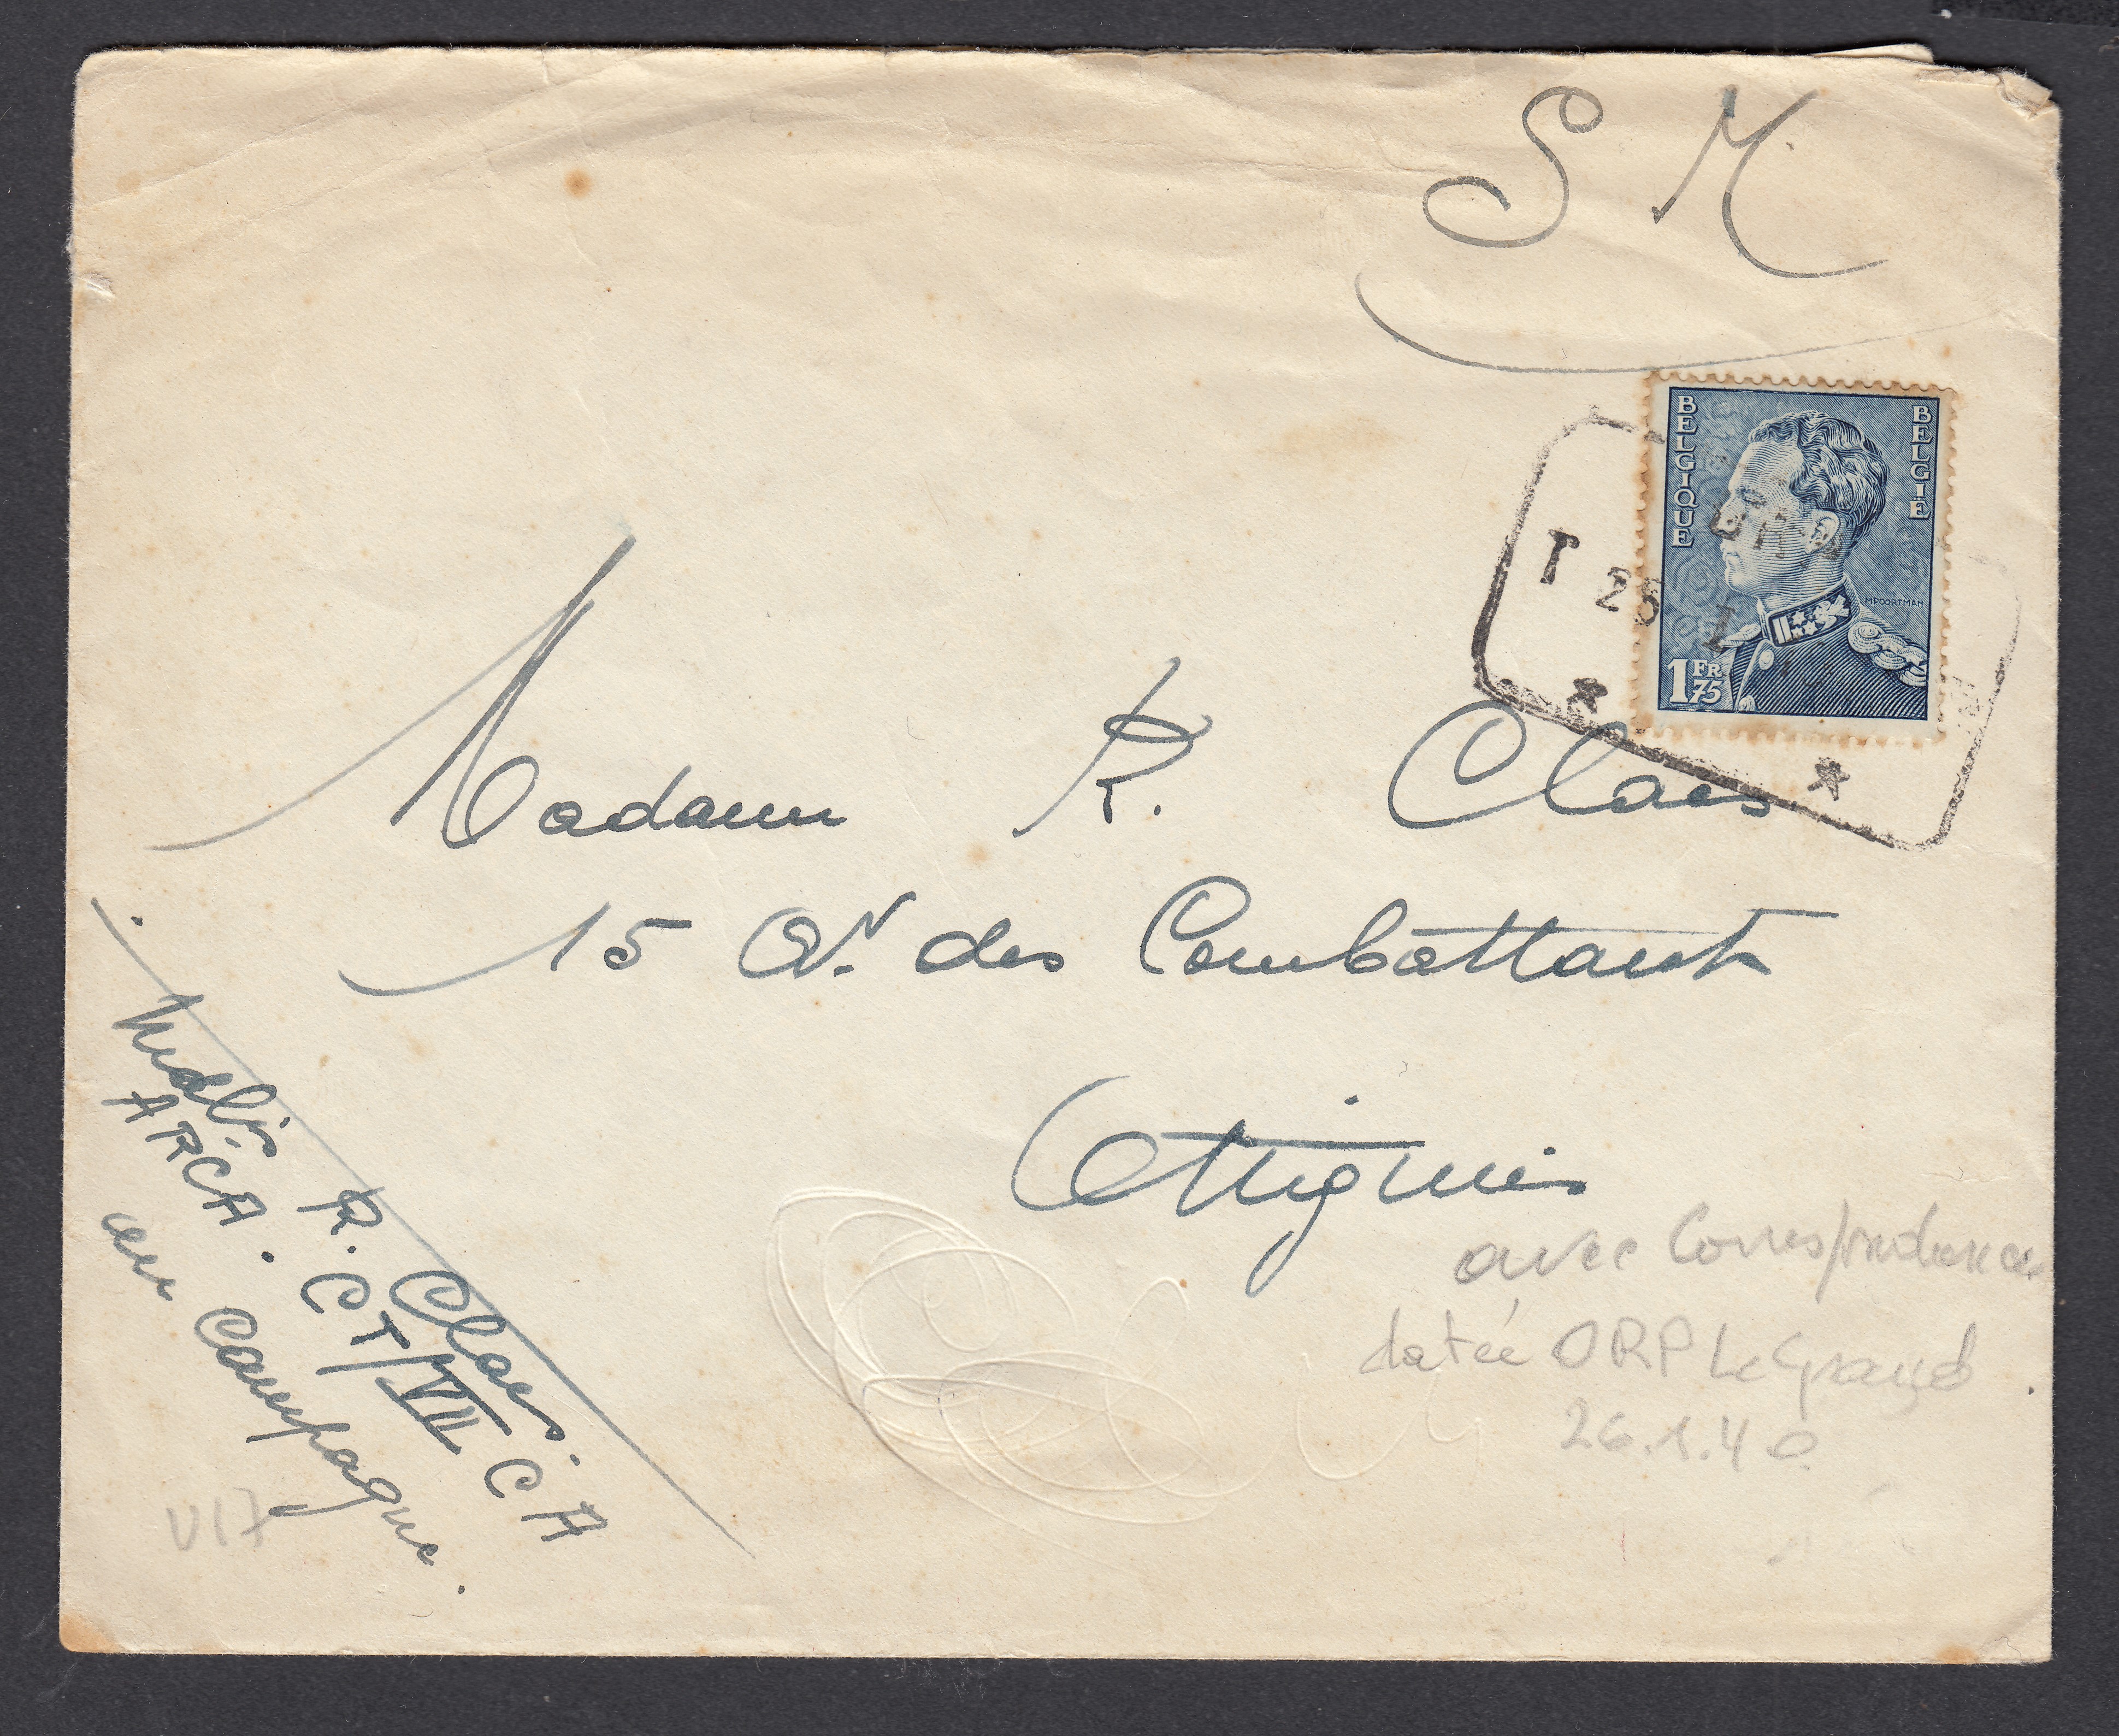 S M
BELGIQUE
BELGIË
T 26 I
MPOORTMAN
1 FR 75
* *
Madame R. Claes
15 Av. des Combattants
Ottignies
R. Claes.
ARCA. CT/VII CA
en Campagne.
avec Correspondance
datée ORP Le Grand
26.1.40
V17